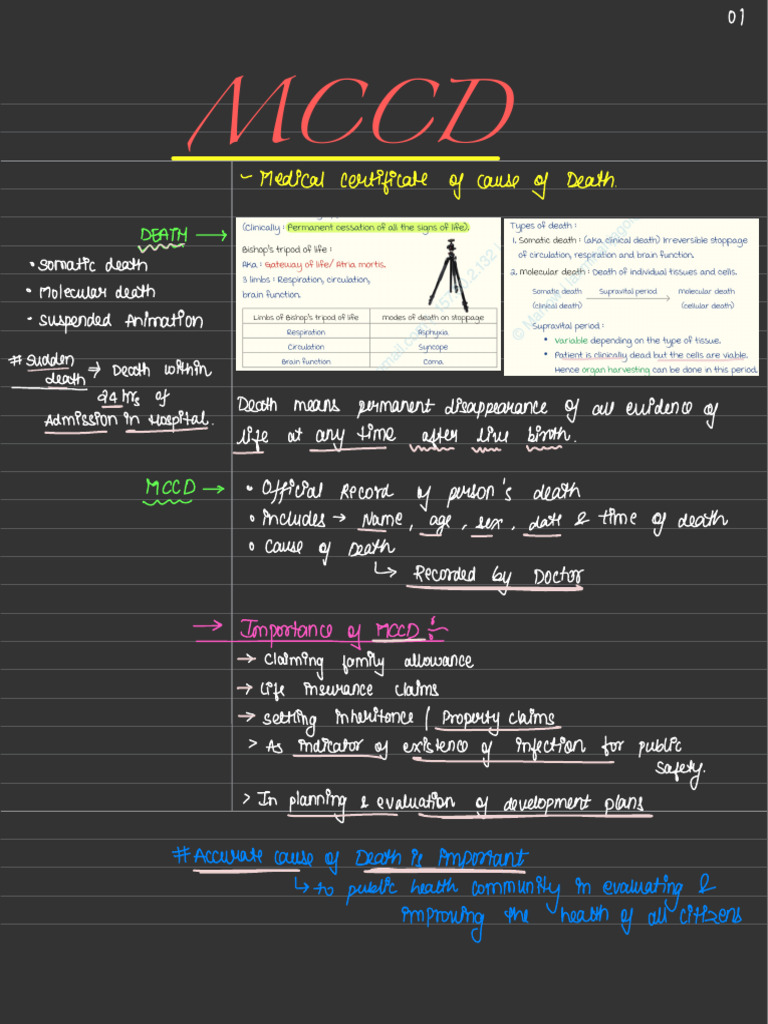 01
MCCD
- Medical Certificate of Cause of Death.
DEATH →
• Somatic death
• Molecular death
• Suspended Animation
# Sudden death → Death within
24 hrs of
Admission in Hospital.
(Clinically : Permanent cessation of all the signs of life).
Bishop's tripod of life :
Aka : Gateway of life/ Atria mortis.
3 limbs : Respiration, circulation,
brain function.
Limbs of Bishop's tripod of life modes of death on stoppage
Respiration Asphyxia
Circulation Syncope
Brain function Coma
Types of death :
1. Somatic death : (aka clinical death) Irreversible stoppage
of circulation, respiration and brain function.
2. molecular death : Death of individual tissues and cells.
Somatic death Supravital period molecular death
(clinical death) → (cellular death)
Supravital period :
• variable depending on the type of tissue.
• Patient is clinically dead but the cells are viable.
Hence organ harvesting can be done in this period.
Death means permanent disappearance of all evidence of
life at any time after live birth.
MCCD →
• Official Record of person's death
• includes → Name, age, sex, date & time of death
• Cause of Death
↳ Recorded by Doctor
→ Importance of MCCD :-
→ Claiming family allowance
→ Life insurance claims
→ settling inheritonce / Property claims
> As indicator of existence of infection for public
safety.
> In planning & evaluation of development plans
# Accurate cause of Death is important
↳ to public health community in evaluating &
improving the health of all citizens